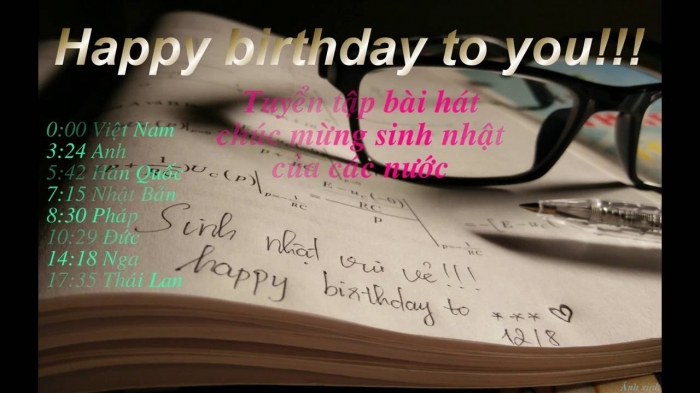 Happy birthday to you!!!
Tuyển tập bài hát
chúc mừng sinh nhật
của các nước
0:00 Việt Nam
3:24 Anh
5:42 Hàn Quốc
7:15 Nhật Bản
8:30 Pháp
10:29 Đức
14:18 Nga
17:35 Thái Lan
Sinh nhật vui vẻ!!!
happy birthday to *** ♡
12/8